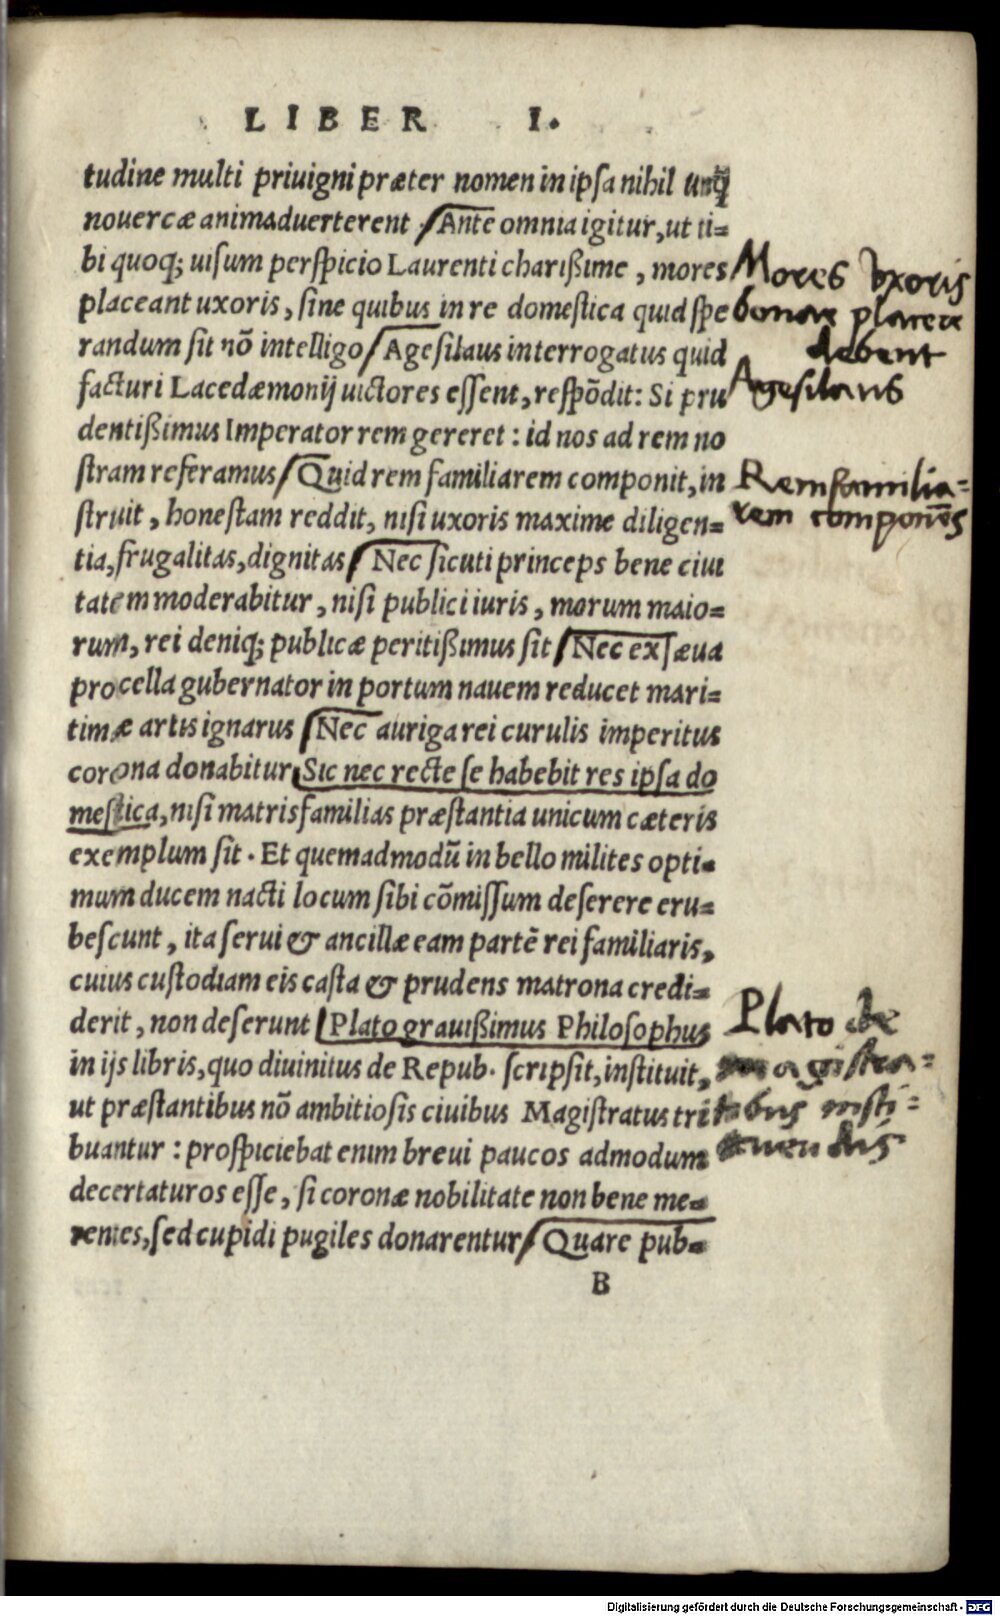 LIBER I.
tudine multi priuigni præter nomen in ipsa nihil unq̃
nouercæ animaduerterent. Ante omnia igitur, ut ti=
bi quoq; uisum perspicio Laurenti charißime, mores
placeant uxoris, sine quibus in re domestica quid spe
randum sit nõ intelligo. Agesilaus interrogatus quid
facturi Lacedæmonij uictores essent, respõdit: Si pru
dentißimus Imperator rem gereret: id nos ad rem no
stram referamus. Quid rem familiarem componit, in
struit, honestam reddit, nisi uxoris maxime diligen=
tia, frugalitas, dignitas. Nec sicuti princeps bene ciui
tatem moderabitur, nisi publici iuris, morum maio=
rum, rei deniq; publicæ peritißimus sit. Nec ex sæua
procella gubernator in portum nauem reducet mari=
timæ artis ignarus. Nec auriga rei curulis imperitus
corona donabitur. Sic nec recte se habebit res ipsa do
mestica, nisi matrisfamilias præstantia unicum cæteris
exemplum sit. Et quemadmodũ in bello milites opti=
mum ducem nacti locum sibi cõmissum deserere eru=
bescunt, ita serui & ancillæ eam partẽ rei familiaris,
cuius custodiam eis casta & prudens matrona credi=
derit, non deserunt. Plato grauißimus Philosophus
in ijs libris, quo diuinitus de Repub. scripsit, instituit,
ut præstantibus nõ ambitiosis ciuibus Magistratus tri
buantur: prospiciebat enim breui paucos admodum
decertaturos esse, si coronæ nobilitate non bene me=
rentes, sed cupidi pugiles donarentur. Quare pub=
B
Mores vxoris
bonae placere
debent
Agesilaus
Rem familia=
rem componẽs
Plato de
magistra=
tibus insti=
tuendis
Digitalisierung gefördert durch die Deutsche Forschungsgemeinschaft - DFG